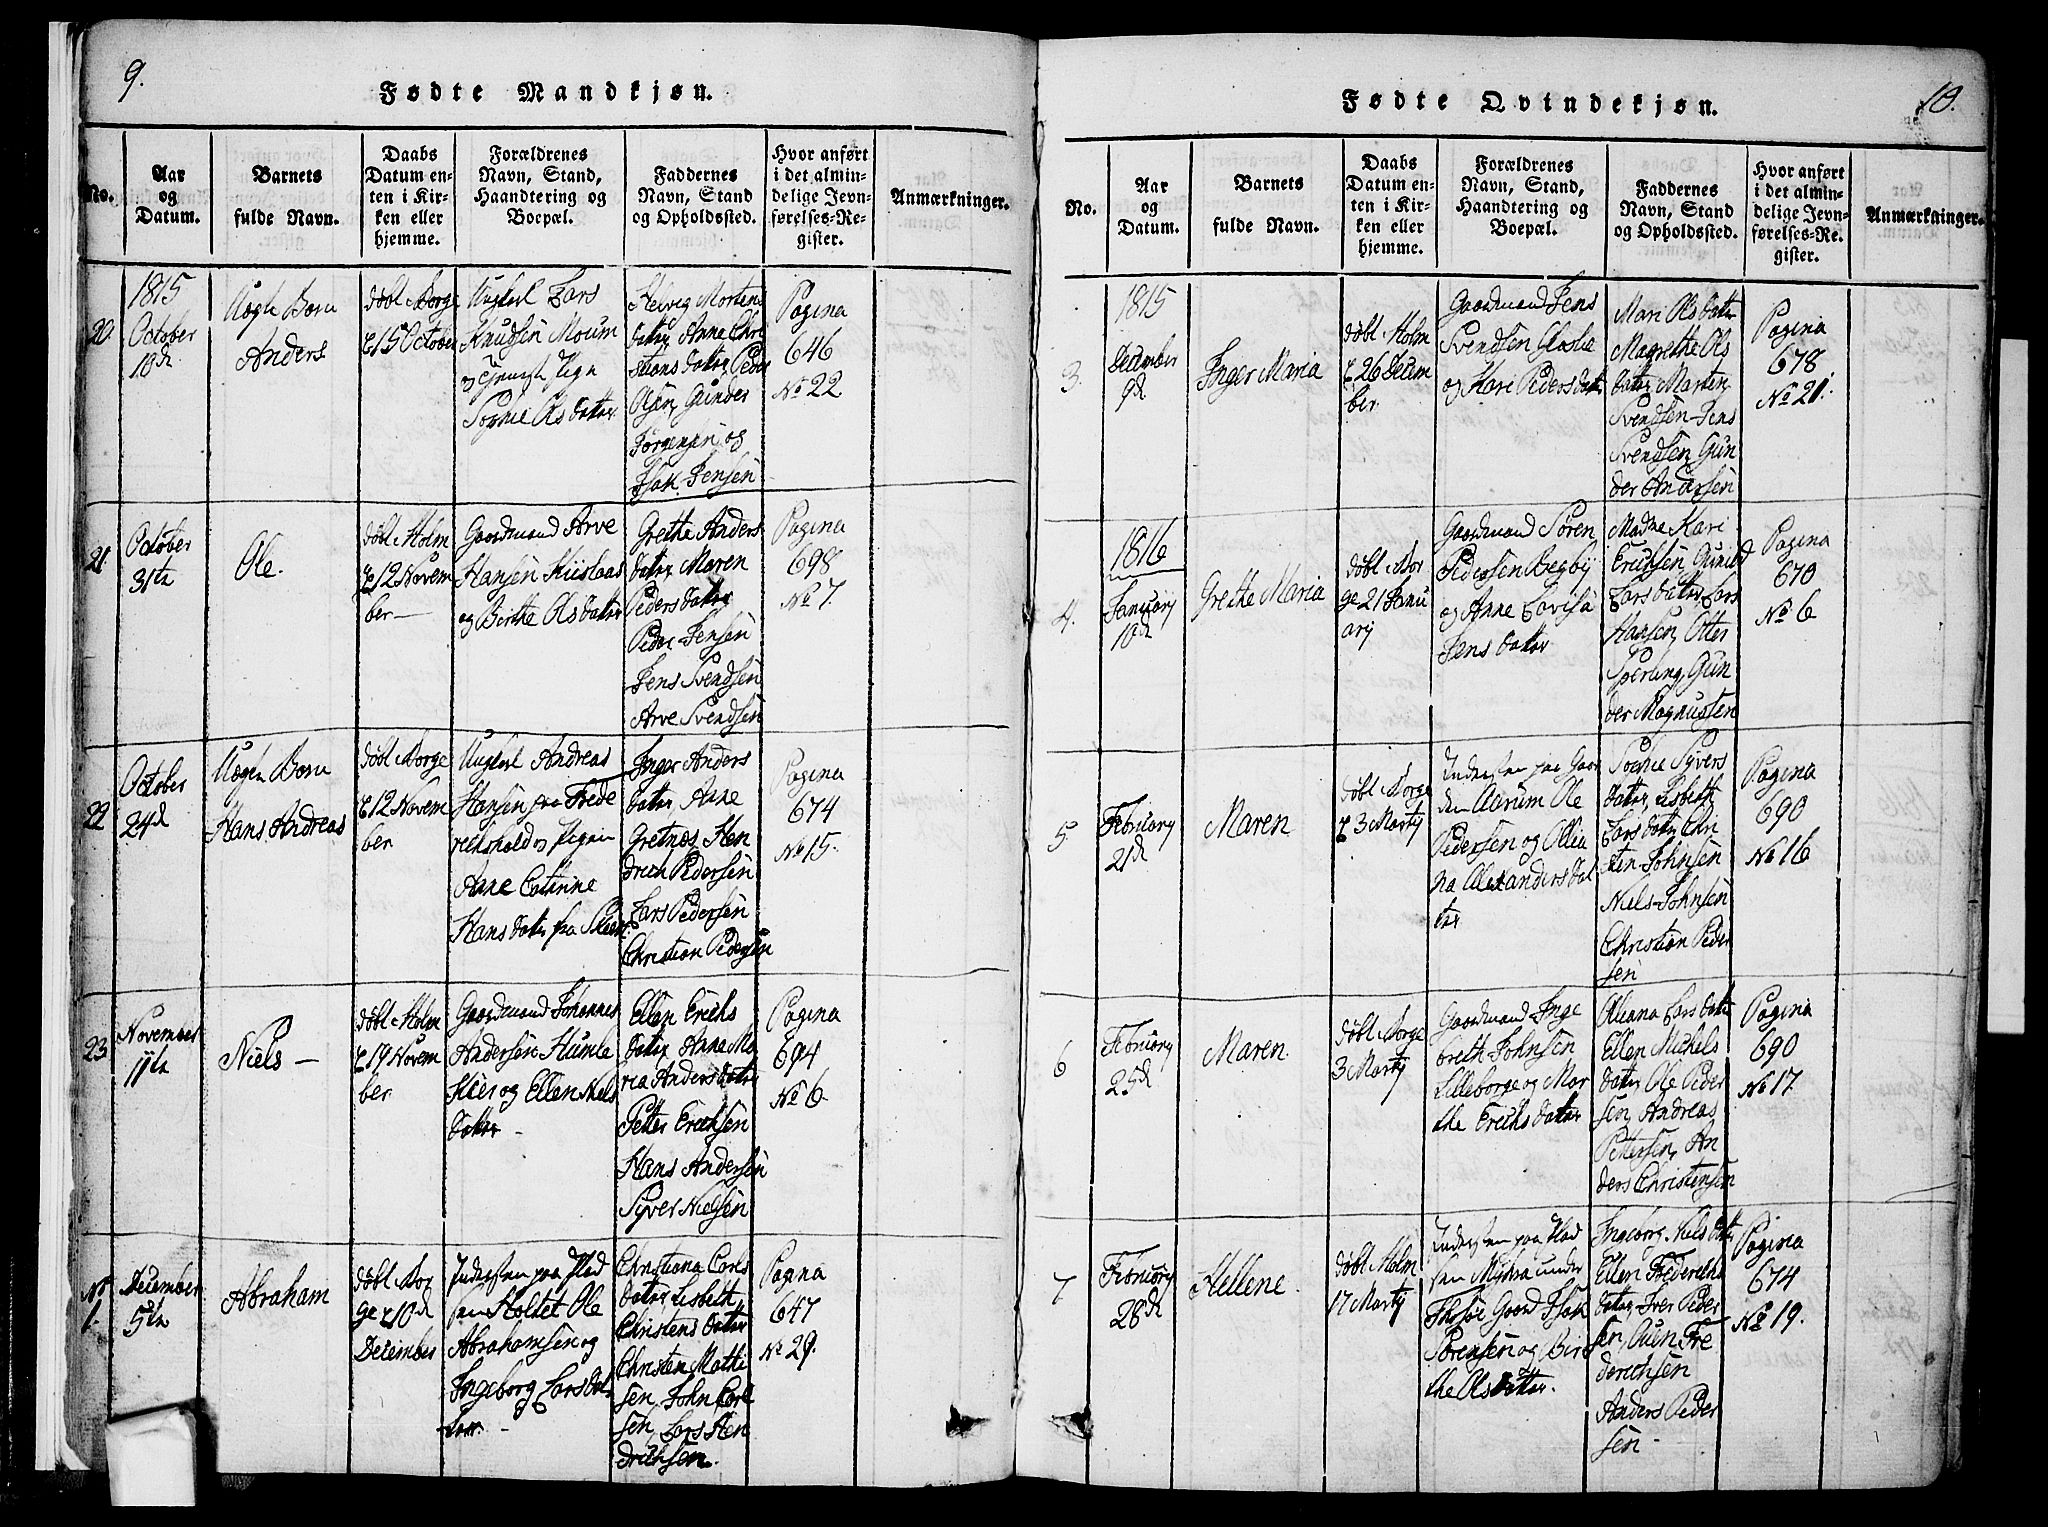 9.
Fødte Mandkjøn.
No.
Aar
og
Datum.
Barnets
fulde Navn.
Daabs
Datum en-
ten i Kir-
ken eller
hjemme.
Forældrenes
Navn, Stand,
Haandtering og
Boepæl.
Faddernes
Navn, Stand
og Opholdssted.
Hvor anført
i det almin-
delige Jevn-
førelses-Re-
gister.
Anmærkninger.
20.
1815
October
10d
Uægte Barn
Anders
døbt Borge
15 October
Ungkarl Lars
Knudsen Moum
og Pige
Sophie Olsdatter
Helvig Mortens
datter, Anne Chri
stians datter, Peder
Olsen, Gunder
Jørgensen og
Isak Jensen
Pagina
646
No 22
21.
October
31te
Ole.
døbt Holm
12 Novem
ber —
Gaardmand Arve
Hansen Kiislaas
og Berthe Olsdatter
Grethe Anders
datter, Maren
Pedersdatter
Peder Jensen
Jens Svendsen
Arve Svendsen
Pagina
698
No 7.
22
October
24d
Uægte Barn
Hans Andreas
døbt Borge
12 Novem
ber
Ungkarl Andreas
Hansen fra Frede
rikshald og Pigen
Anne Catrine
Hansdatter fra
Inger Anders
datter, Anne
Gretnæs, Hen
drich Pedersen
Lars Pedersen
Christian Pedersen
Pagina
674
No 15.
23
November
11te
Niels —
døbt Holm
19 Novem
ber
Gaardmand Johannes
Andersen Humle
kier og Ellen Niels
datter —
Ellen Erichs
datter, Anne Ma
ria Andersdatter
Petter Erichsen
Hans Andersen
Syver Nielsen
Pagina
694
No 6
No
1.
December
5te
Abraham
døbt Bor
ge 10d
December
Inderster paa Plad
sen Holtet Ole
Abrahamsen og
Ingeborg Larsdat
ter. —
Christiana Carls
datter, Lisbeth
Christensdatter
Christen Matti
sen, John Carl
sen, Lars Hen
drichsen.
Pagina
647
No 29.
10.
Fødte Qvindekjøn.
No.
Aar
og
Datum.
Barnets
fulde Navn.
Daabs
Datum en-
ten i Kir-
ken eller
hjemme.
Forældrenes
Navn, Stand,
Haandtering og
Boepæl.
Faddernes
Navn, Stand
og Opholdssted.
Hvor anført
i det almin-
delige Jevn-
førelses-Re-
gister.
Anmærkninger.
3.
1815
December
9d
Inger Maria
døbt Holm
26 Decem
ber
Gaardmand Jens
Svendsen
og Kari Pedersdatter
Mari Olsdatter
Magrethe Ols
datter, Morten
Svendsen, Jens
Svendsen, Gun
der Andersen
Pagina
678
No 21.
4.
1816
January
10d
Grethe Maria
døbt Bor
ge 21 Janu
arij
Gaardmand Søren
Pedersen Begby
og Anne Lovisa
Jensdatter
Madme Kari
Erichsen, Gunild
Larsdatter, Lars
Hansen, Otter
Sperling, Gun
der Magnussen
Pagina
670
No 6
5
February
21d
Maren
døbt Borge
3 Martij
Inderster paa Gaar
den Aarum Ole
Pedersen og Ollia
na Alexandersdat
ter
Sophie Syvers
datter, Lisbeth
Larsdatter, Chri
sten Johnsen
Niels Johnsen
Christian Peder
sen
Pagina
690
No 16
6
February
25d
Maren
døbt Borge
3 Martij
Gaardmand Inge
breth Johnsen
Lilleborge og Mar
the Erichsdatter
Oleana Larsdatter
Ellen Michels
datter, Ole Peder
sen, Andreas
Pettersen, An
ders Christensen
Pagina
690
No 17.
7
February
28d
Hellene
døbt Holm
17 Martij
Inderster paa Plad
sen Myhra under
Thisøe Gaard Isak
Sørensen og Bir
the Olsdatter.
Ingeborg Nielsdatter
Ellen Frederichs
datter, Iver Peder
sen, Ouen Fre
derichsen
Anders Peder
sen —
Pagina
674
No 19.